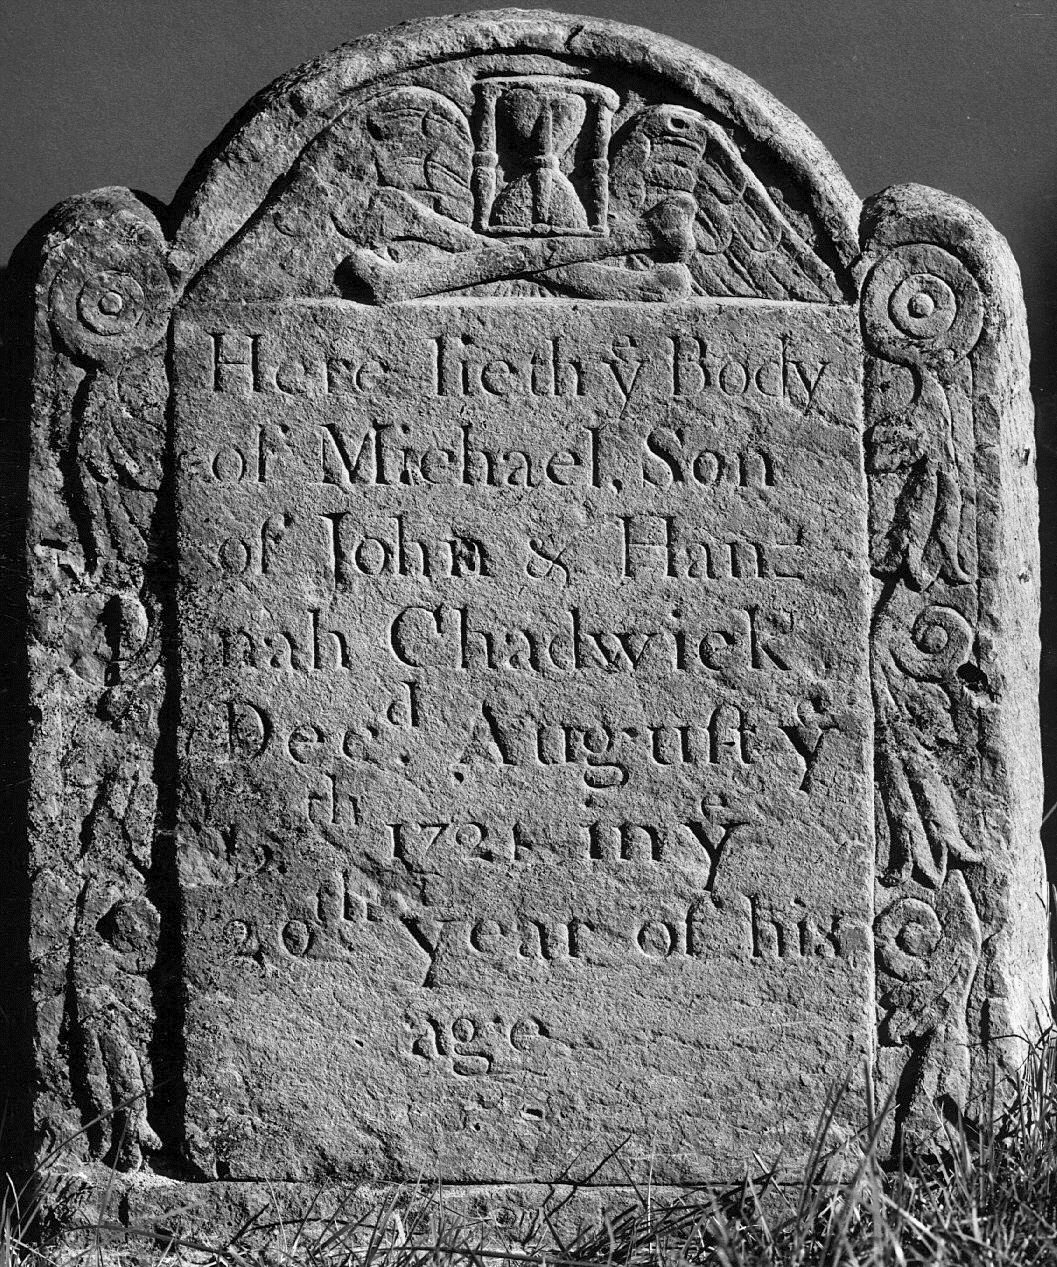 Here lieth yᵉ Body
of Michael, Son
of John & Han=
nah Chadwick
Decᵈ. August yᵉ
20ᵗʰ 1721 in yᵉ
20ᵗʰ year of his
age